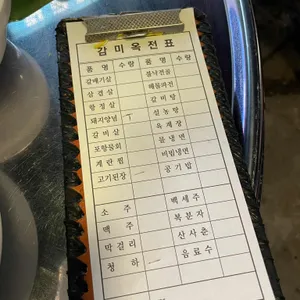 감미옥전표
품명 수량 품명 수량
갈매기살 불낙전골
삼겹살 해물파전
항정살 갈비탕
돼지양념 T 설농탕
갈비살 육개장
포항물회 물냉면
계란찜 비빔냉면
고기된장 一 공기밥
소주 백세주
맥주 복분자
막걸리 산사춘
청하 一 음료수